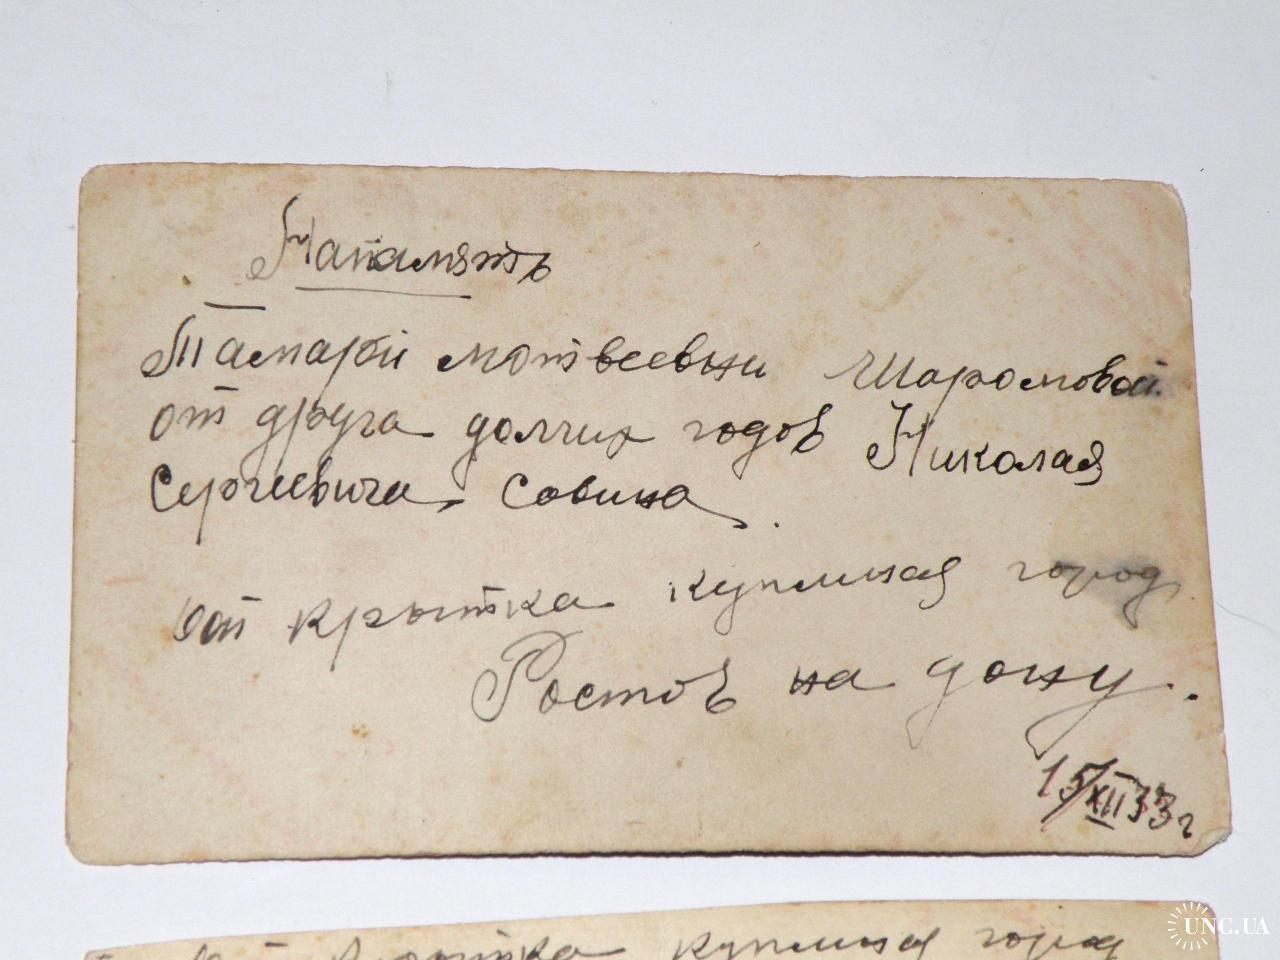 Напамять
Тамары мотвеевны Шаромовой
от друга долгих годов Николая
Сергеевича Совина.
От крытка купленая город
Ростов на дону.
15/XII 33 г
крытка купленая город
UNC.UA